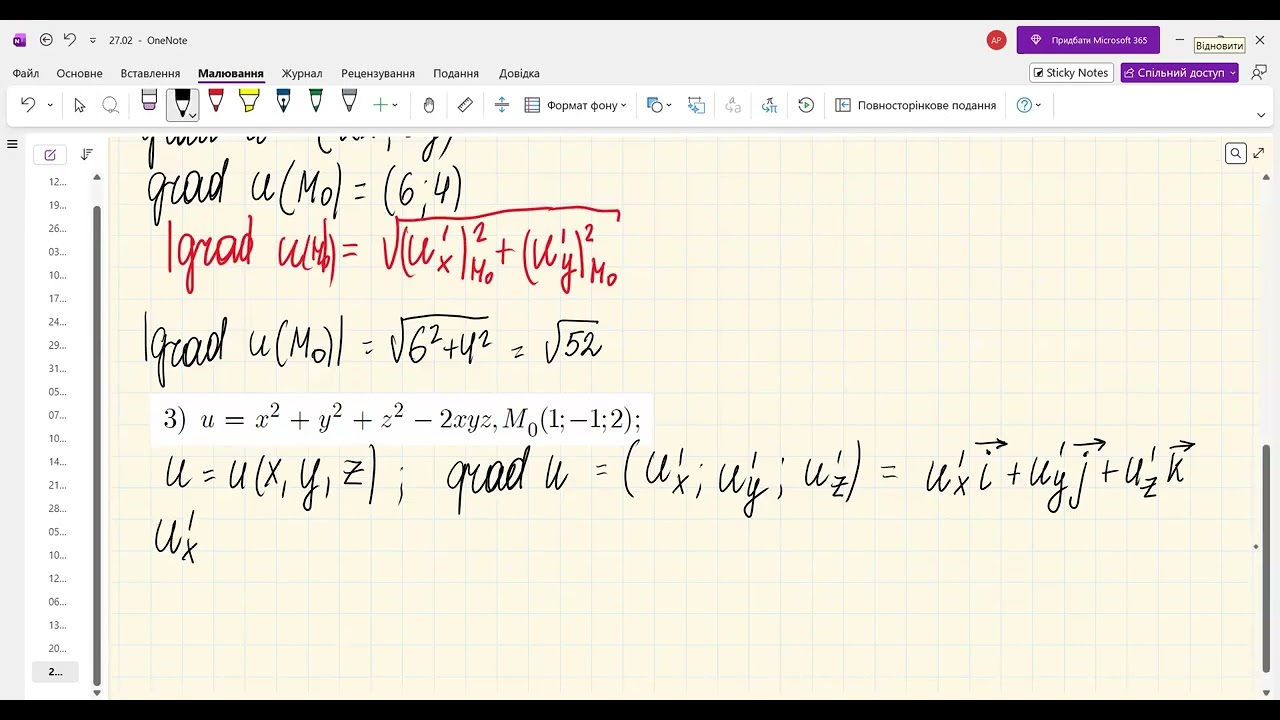 27.02 - OneNote
AP
Придбати Microsoft 365
Відновити
Файл Основне Вставлення Малювання Журнал Рецензування Подання Довідка
Sticky Notes
Спільний доступ
Формат фону
Повносторінкове подання
12...
19...
26...
03...
10...
17...
24...
29...
31...
05...
07...
10...
14...
28...
05...
10...
12...
06...
13...
20...
2...
grad u(M₀) = (6;4)
|grad u(M₀)| = √((u'ₓ)²_M₀ + (u'_y)²_M₀)
|grad u(M₀)| = √(6²+4²) = √52
3) u = x² + y² + z² − 2xyz, M₀(1;−1;2);
u = u(x, y, z) ; grad u = (u'ₓ; u'_y; u'_z) = u'ₓ i⃗ + u'_y j⃗ + u'_z k⃗
u'ₓ